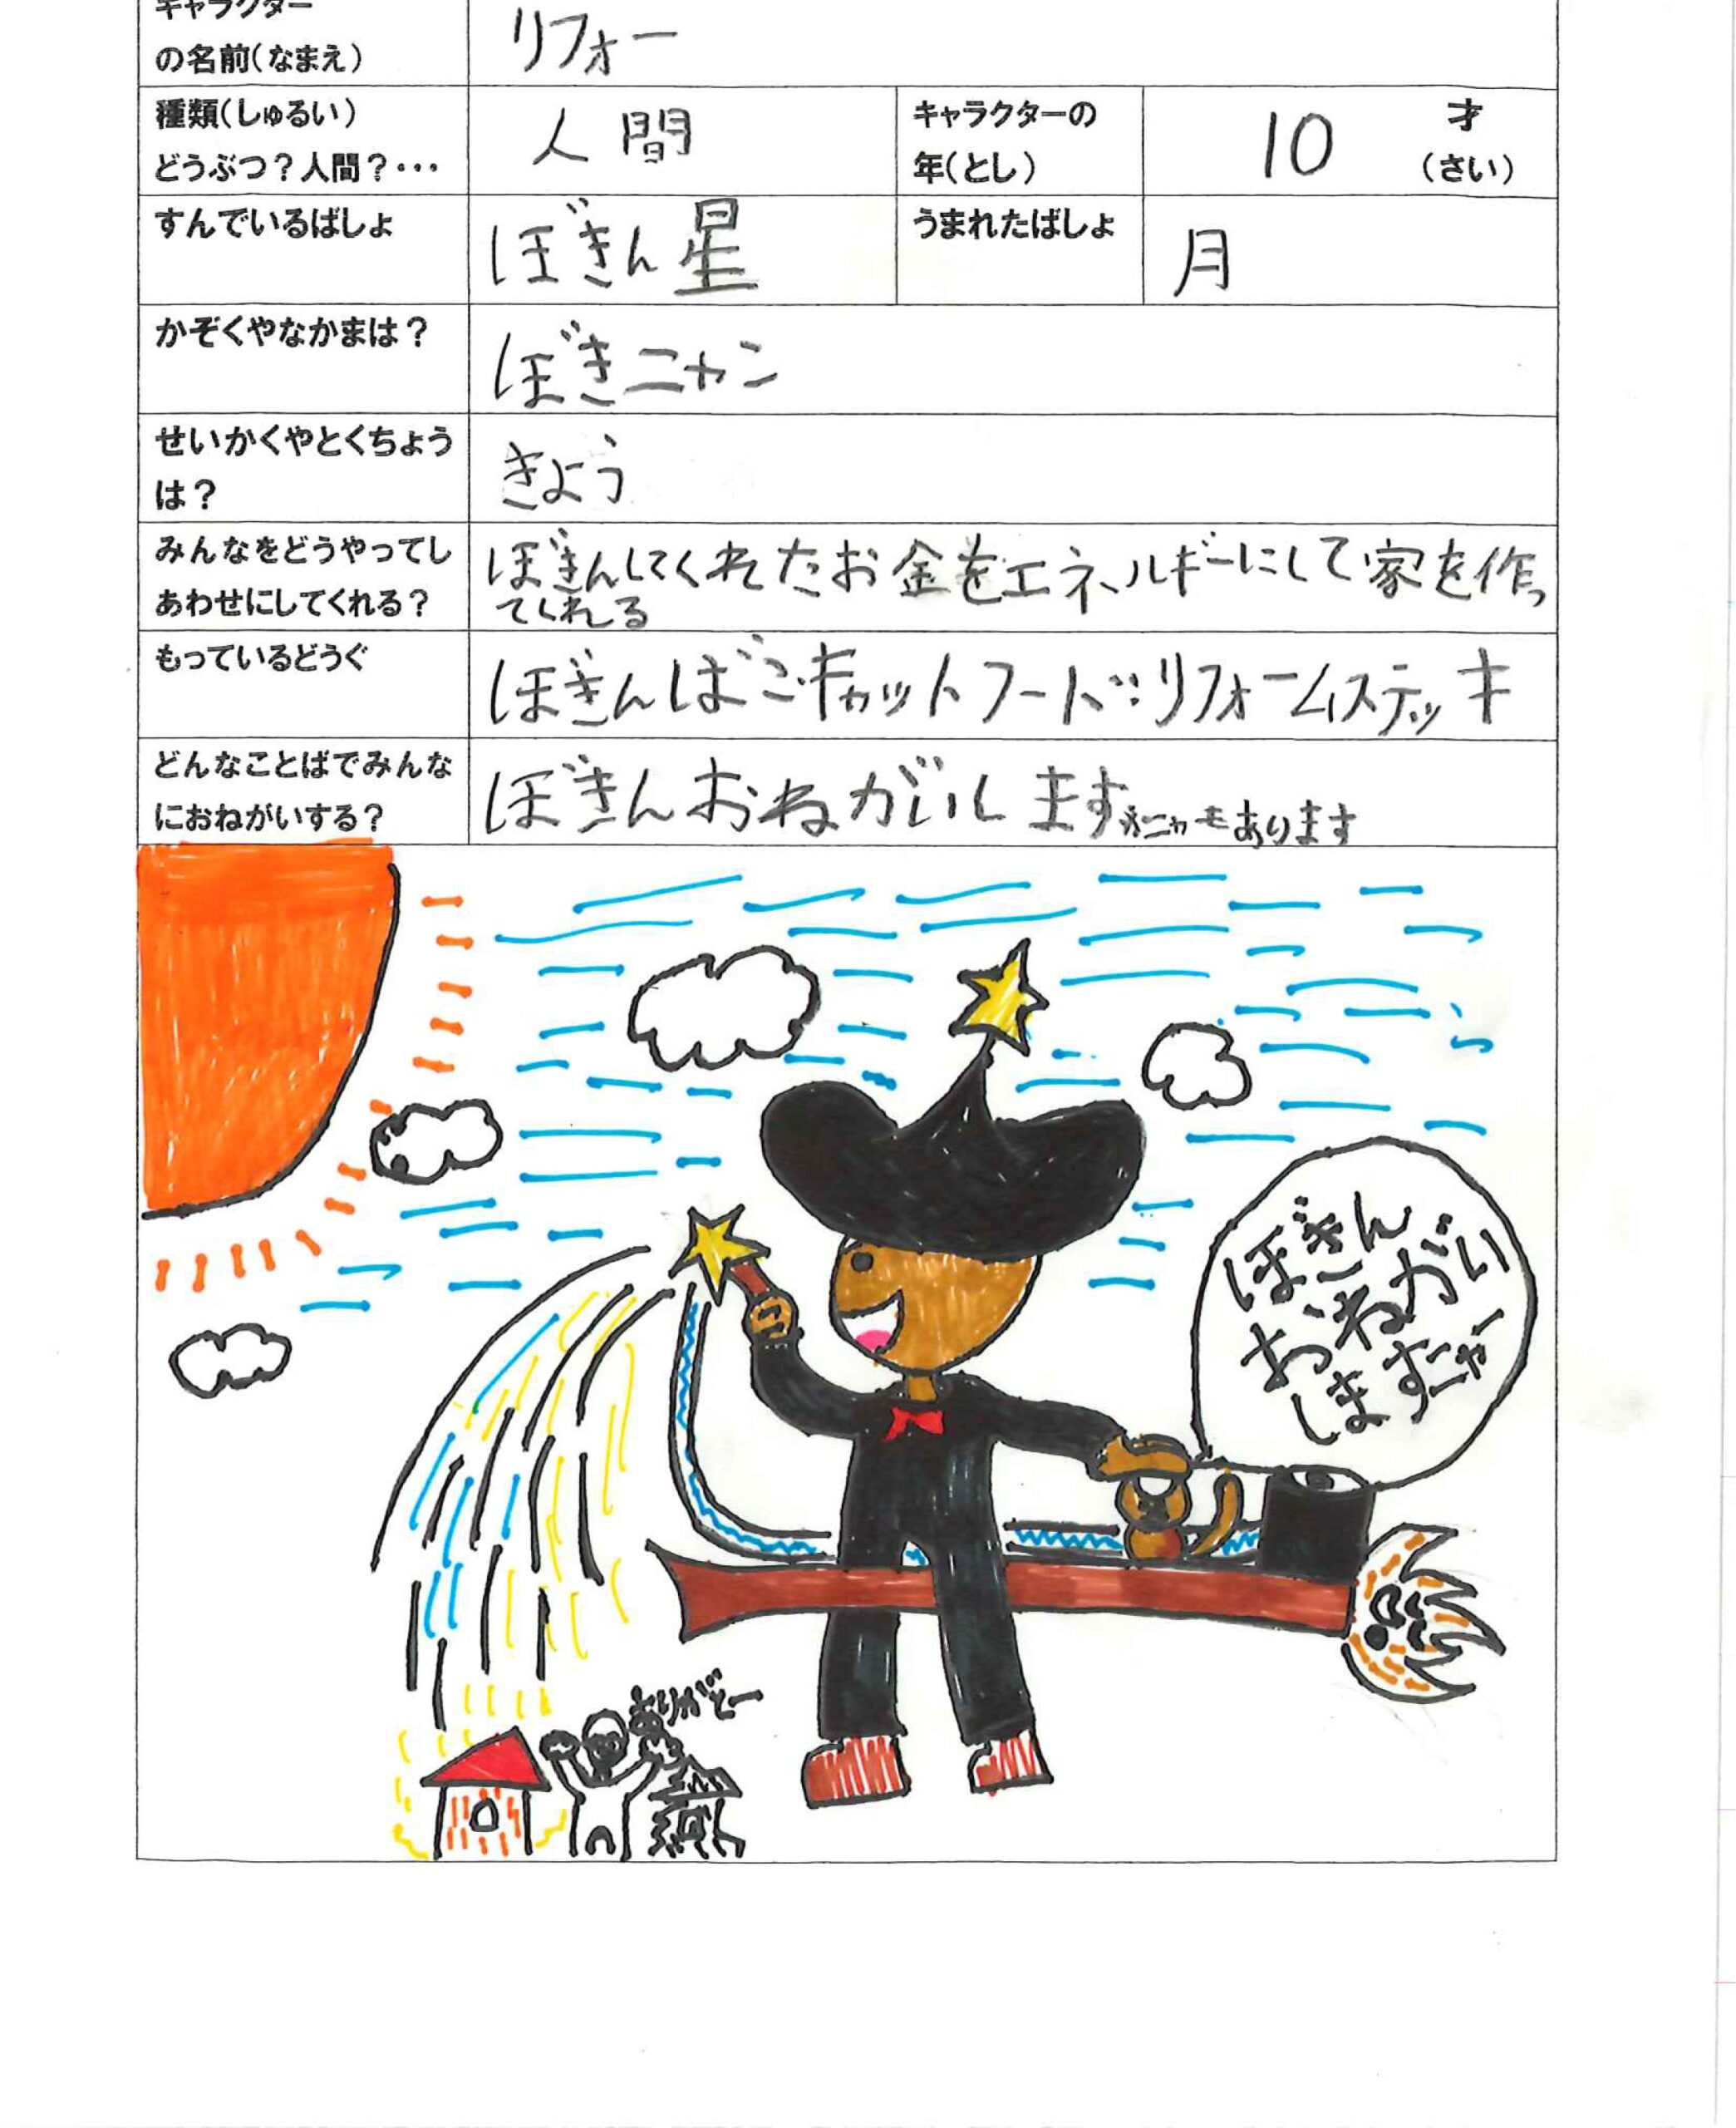 キャラクター
の名前(なまえ)
リフォー
種類(しゅるい)
どうぶつ?人間?・・・
人間
キャラクターの
年(とし)
10
才
(さい)
すんでいるばしょ
ぼきん星
うまれたばしょ
月
かぞくやなかまは?
ぼきニャン
せいかくやとくちょう
は?
きよう
みんなをどうやってし
あわせにしてくれる?
ぼきんしてくれたお金をエネルギーにして家を作っ
てくれる
もっているどうぐ
ぼきんばこ・キャットフード・リフォームステッキ
どんなことばでみんな
におねがいする?
ぼきんおねがいします※ニャもあります
ぼきん
おねがい
しますニャー
ありがとー